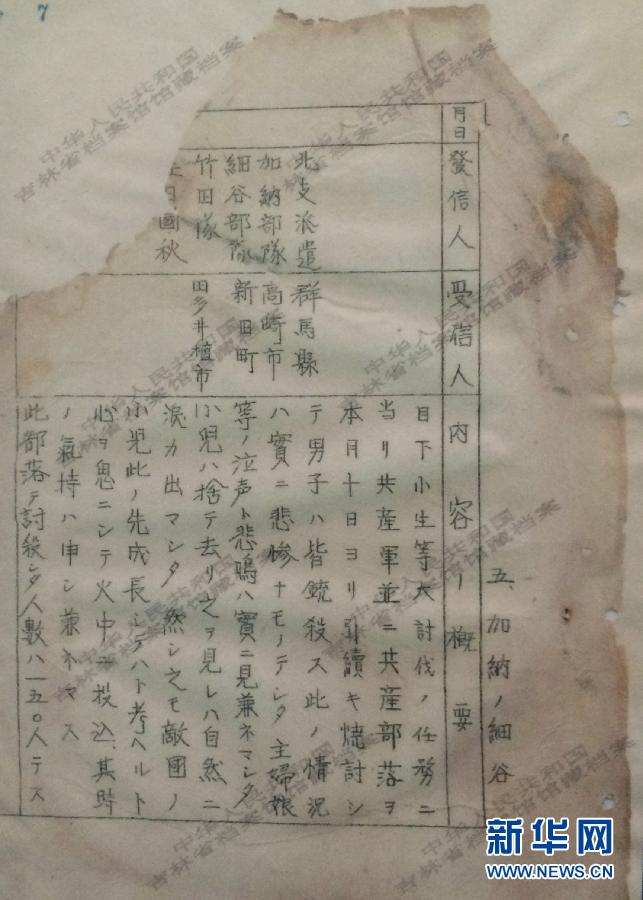 7
五、加納ノ細谷
月日
發信人
受信人
内容ノ概要
北支派遣
加納部隊
細谷部隊
竹田隊
國秋
群馬縣
高崎市
新田町
田多井植市
目下小生等大討伐ノ任務ニ
当リ共産軍並ニ共産部落ヲ
本月十日ヨリ引續キ焼討シ
テ男子ハ皆銃殺ス此ノ情況
ハ實ニ悲惨ナモノデシタ主婦娘
等ノ泣声ト悲鳴ハ實ニ見兼ネマシタ
小児ハ捨テ去リ之ヲ見レハ自然ニ
涙カ出マシタ 然シ之モ敵國ノ
小児此ノ先成長シテハト考ヘルト
心ヲ鬼ニシテ火中ニ投込、其時
ノ氣持ハ申シ兼ネマス
此部落デ討殺シタ人數ハ一五〇人テス
中华人民共和国
吉林省档案馆馆藏档案
新华网
WWW.NEWS.CN